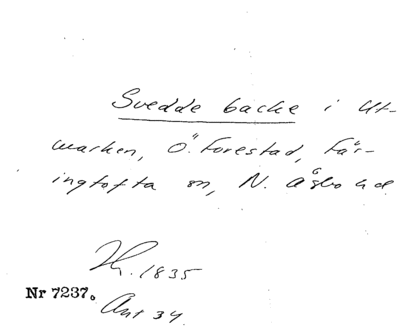 Svedde backe i Ut-
marken, Ö. Forestad, Fär-
ingtofta sn, N. Åsbo hd.
1835
Nr 7237.
Ant 34